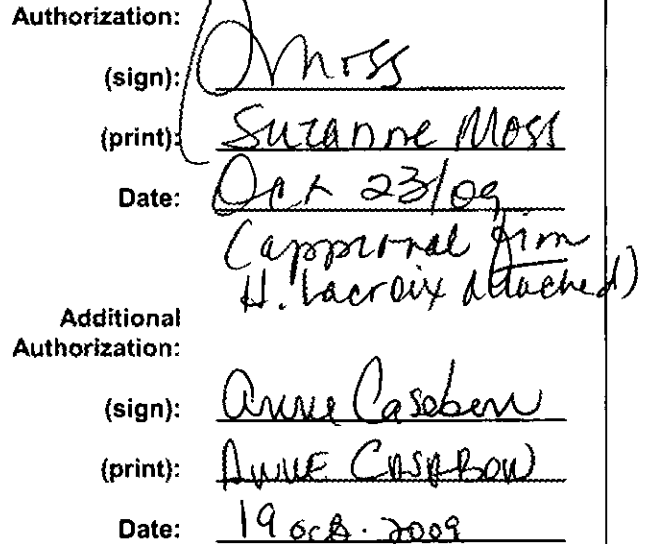 Authorization:
(sign): SMoss
(print): Suzanne Moss
Date: Oct 23/09
(approval from
H. Lacroix attached)
Additional
Authorization:
(sign): Anne Casabon
(print): ANNE CASABON
Date: 19 oct. 2009